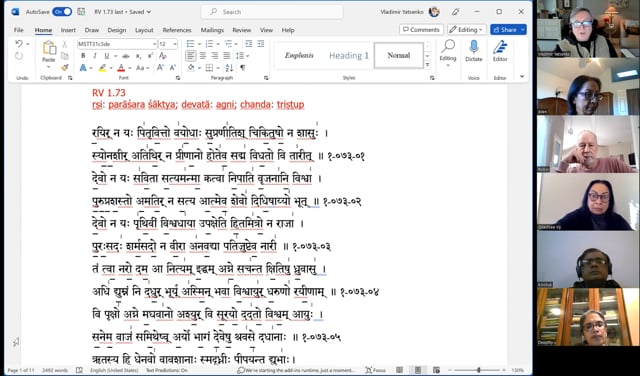 AutoSave On RV 1.73 last • Saved Search Vladimir Yatsenko
File Home Insert Draw Design Layout References Mailings Review View Help Comments Editing Share
MSTT31c3de 12 Emphasis Heading 1 Normal
Paste Editing Dictate Editor
Undo Clipboard Font Paragraph Styles Voice Editor
RV 1.73
ṛṣi: parāśara śāktya; devatā: agni; chanda: triṣtup
रयिर् न यः पितृवित्तो वयोधाः सुप्रणीतिश् चिकितुषो न शासुः ।
स्योनशीर् अतिथिर् न प्रीणानो होतेव सद्म विधतो वि तारीत् ॥ १-०७३-०१
देवो न यः सविता सत्यमन्मा क्रत्वा निपाति वृजनानि विश्वा ।
पुरुप्रशस्तो अमतिर् न सत्य आत्मेव शेवो दिधिषाय्यो भूत् ॥ १-०७३-०२
देवो न यः पृथिवीं विश्वधाया उपक्षेति हितमित्रो न राजा ।
पुरःसदः शर्मसदो न वीरा अनवद्या पतिजुष्टेव नारी ॥ १-०७३-०३
तं त्वा नरो दम आ नित्यम् इद्धम् अग्ने सचन्त क्षितिषु ध्रुवासु ।
अधि द्युम्नं नि दधुर् भूर्य् अस्मिन् भवा विश्वायुर् धरुणो रयीणाम् ॥ १-०७३-०४
वि पृक्षो अग्ने मघवानो अश्युर् वि सूरयो ददतो विश्वम् आयुः ।
सनेम वाजं समिथेष्व् अर्यो भागं देवेषु श्रवसे दधानाः ॥ १-०७३-०५
ऋतस्य हि धेनवो वावशानाः स्मदूध्नीः पीपयन्त द्युभक्ताः ।
Page 1 of 11 2492 words English (United States) Text Predictions: On We're starting the add-ins runtime, just a moment... Focus 130%
Vladimir Yatsenko
Kirshuk